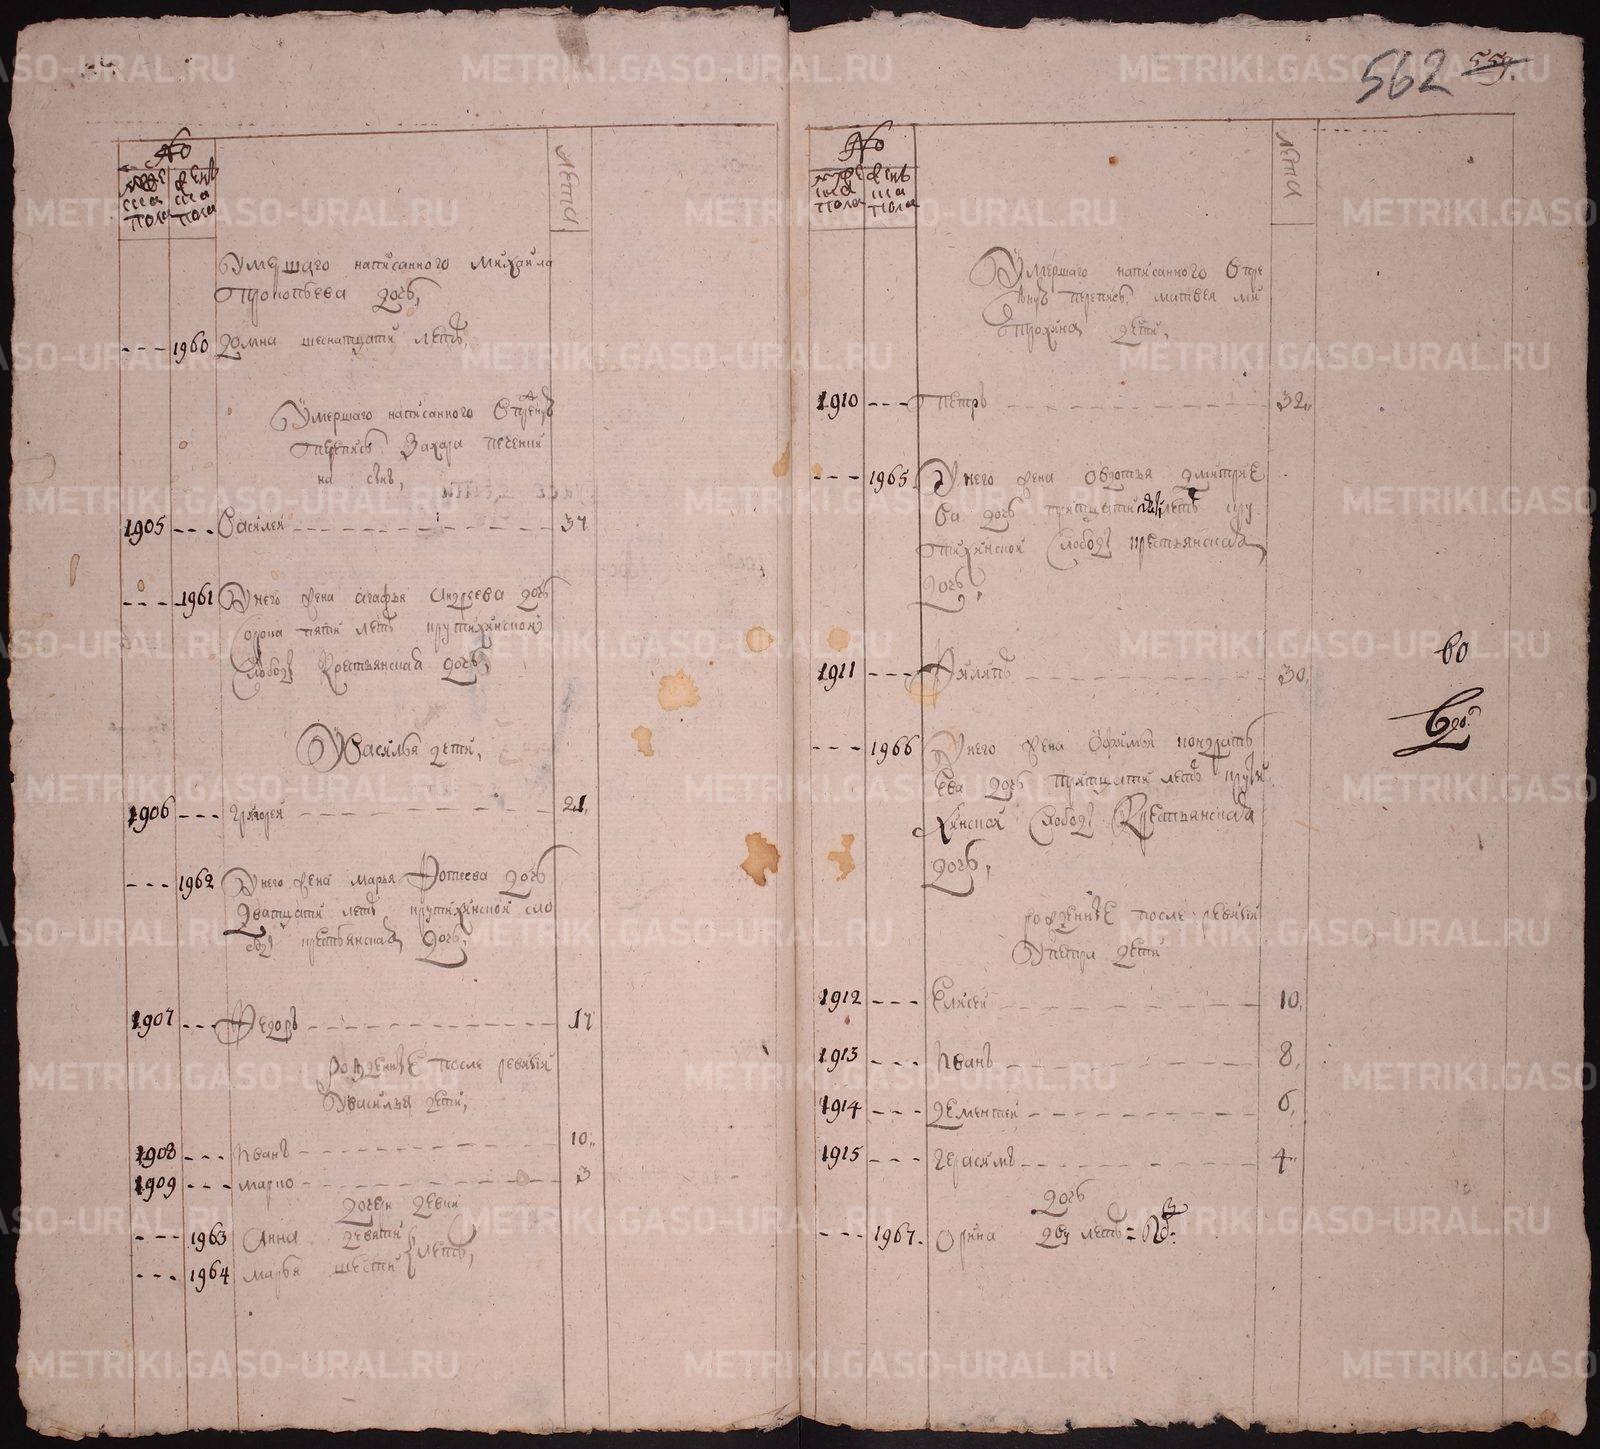 562 559
№
муже
ска
пола
женъ
ска
пола
лета
Умершаго написанного михаила
Прокопьева дочь,
--- 1960 Домна шеснатцати летъ,
Умершаго написанного втренуъ
перепись Захара печени
на сынъ,
1905 --- Василей 37
--- 1961 Унего жена агафья андреева дочь
сорока пяти летъ крутихинской
слободы крестьянская дочь,
Увасилья дети,
1906 --- григорей 21,
--- 1962 Унего жена марья Фотеева дочь
дватцати летъ крутихинской сло
боды крестьянская дочь,
1907 --- Федоръ 17
рожденные после ревизии
Увасилья дети,
1908 --- иванъ 10,
1909 --- марко 3
дочери девки
--- 1963 Анна девяти
--- 1964 марья шести летъ,
№
муже
ска
пола
женъ
ска
пола
лета
Умершаго написанного втре
тьюъ перепись матвея ми
трохина дети,
1910 --- петръ 32,
--- 1965 Унего жена овдотья дмитрие
ва дочь тритцати летъ кру
тихинской слободы крестьянская
дочь,
1911 --- Филипъ 30,
во
--- 1966 Унего жена офимья кондрать
ева дочь тритцати летъ крути
хинской слободы крестьянская
дочь,
рожденные после ревизии
Упетра дети
1912 --- Елисей 10,
1913 --- иванъ 8,
1914 --- дементей 6,
1915 --- герасимъ 4
дочь
--- 1967. орина дву летъ
METRIKI.GASO-URAL.RU